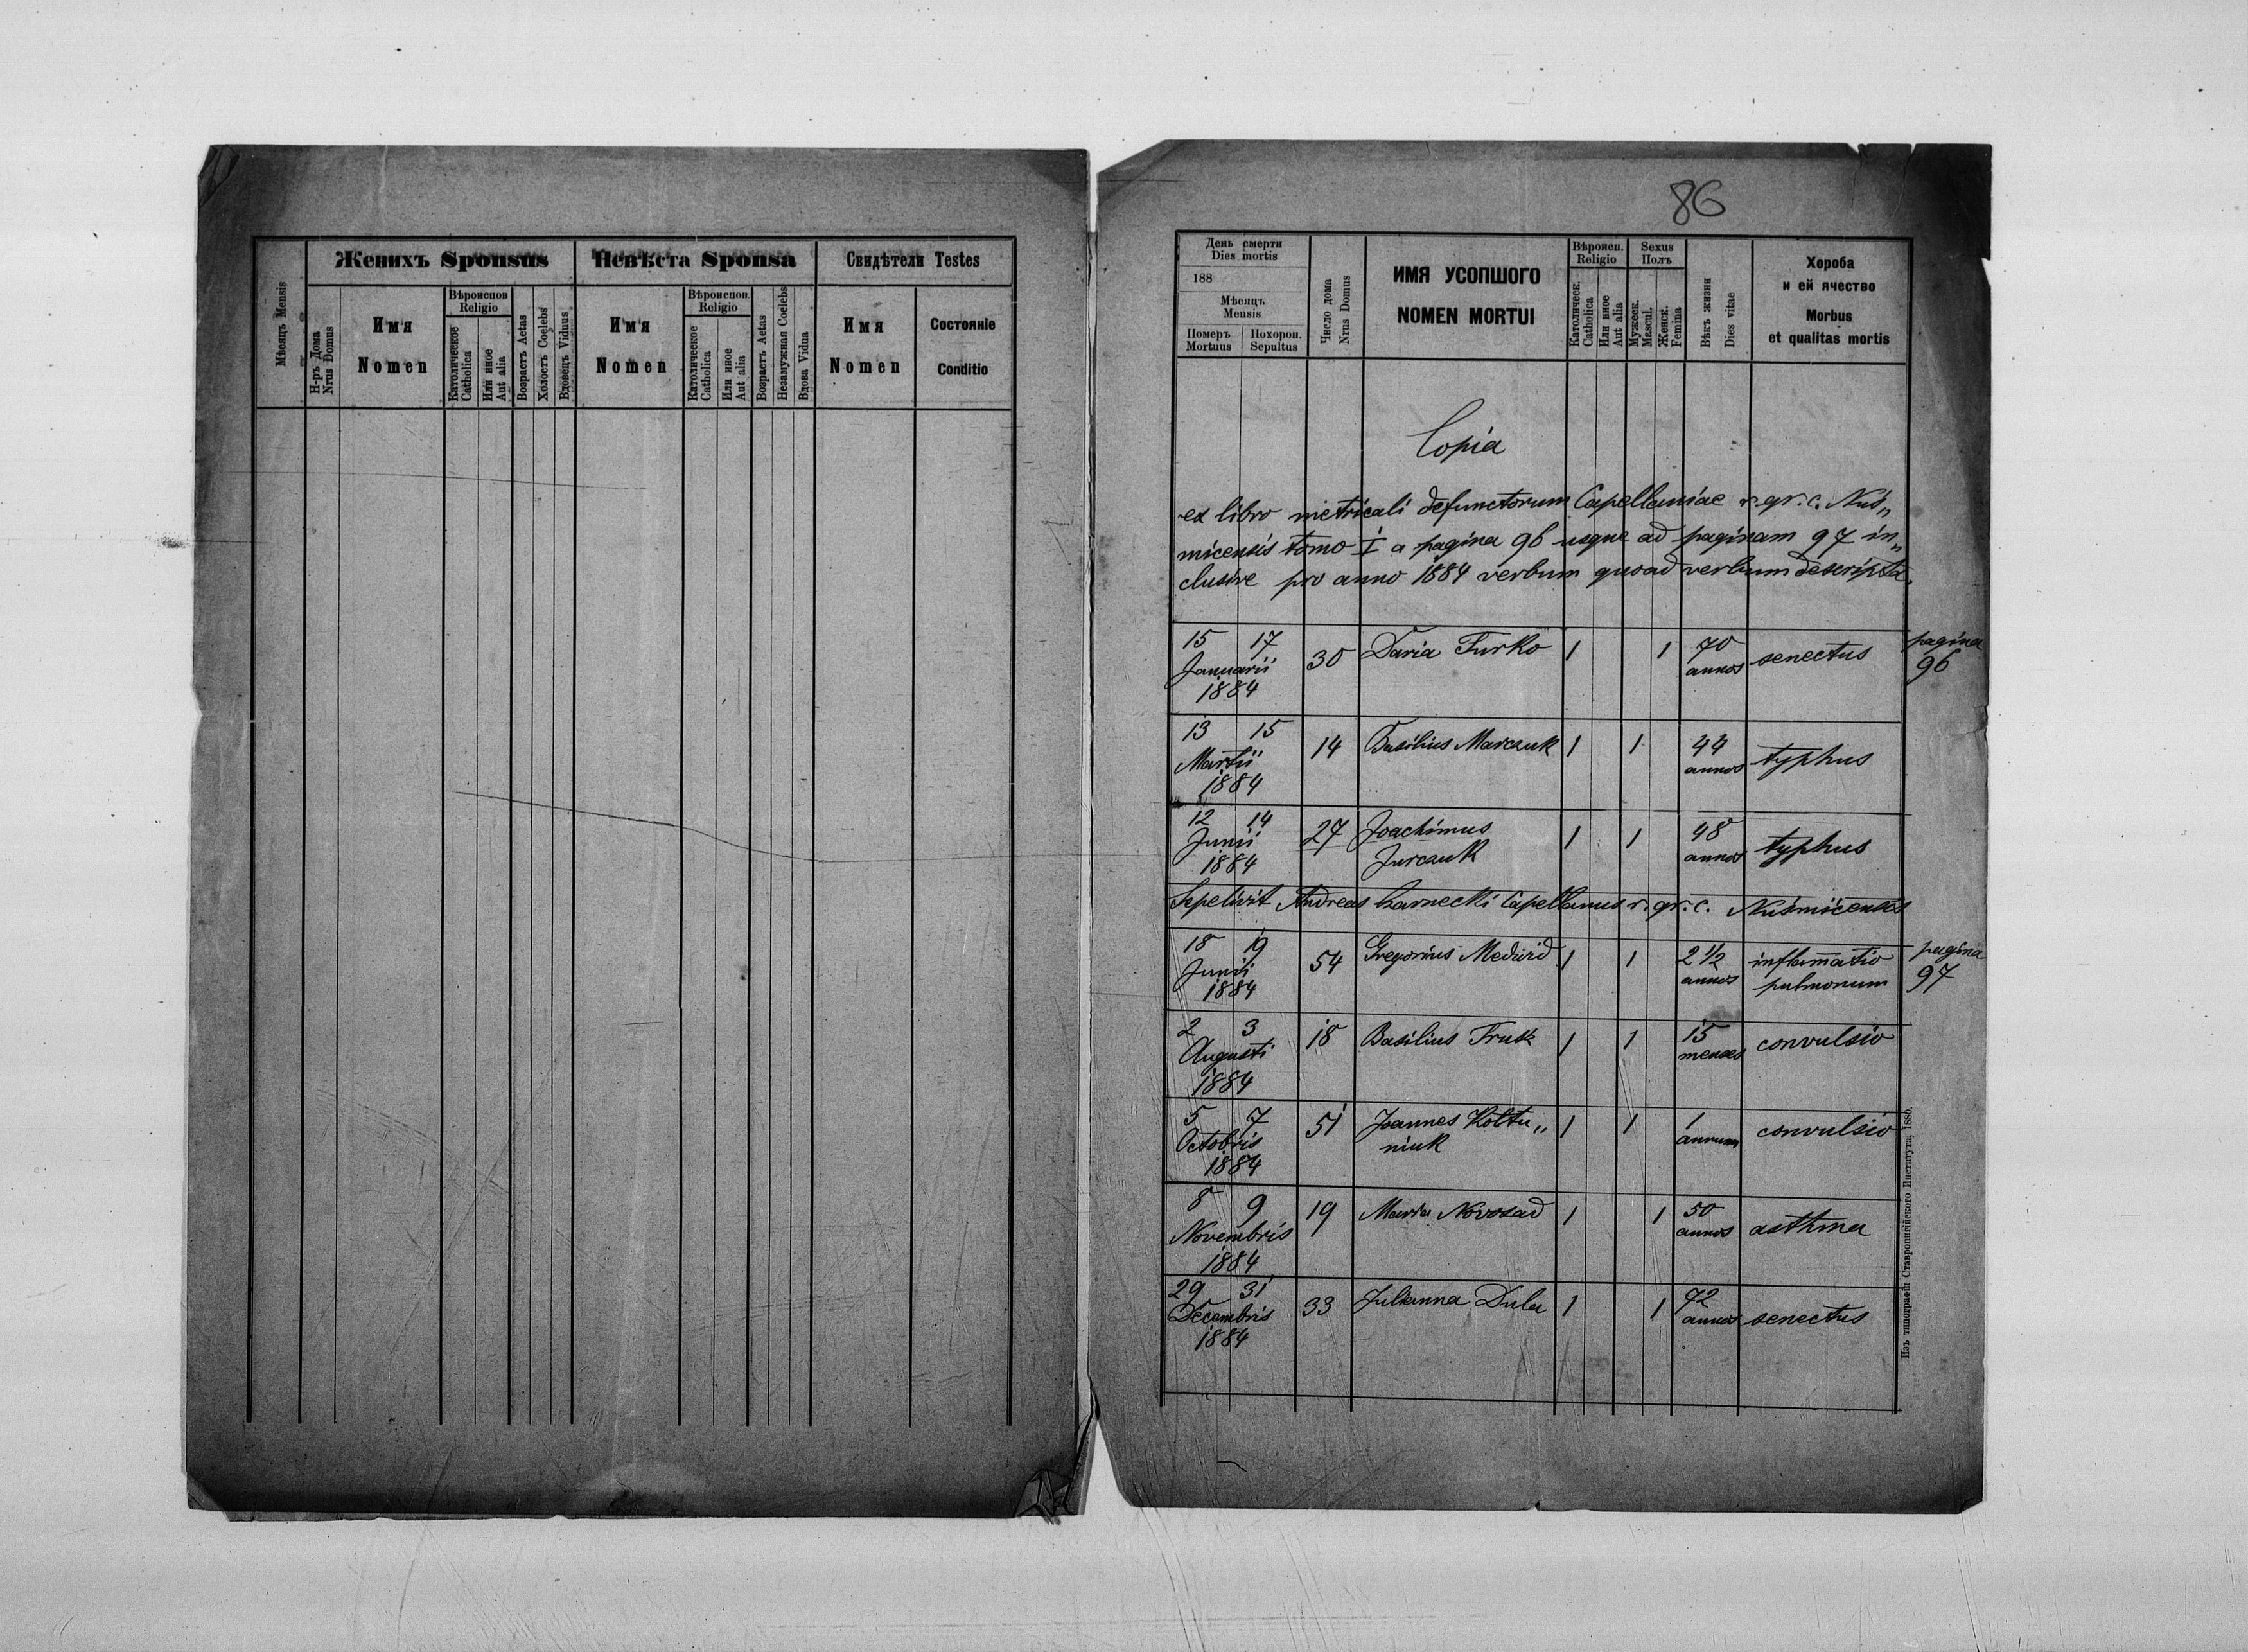 Женихъ Sponsus
Невѣста Sponsa
Свидѣтели Testes
Мѣсяцъ Mensis
Н-ръ Дома
Nrus Domus
Имя
Nomen
Вѣроиспов
Religio
Католическое
Catholica
Или иное
Aut alia
Возрастъ Aetas
Холостъ Coelebs
Вдовецъ Viduus
Имя
Nomen
Вѣроиспов.
Religio
Католическое
Catholica
Или иное
Aut alia
Возрастъ Aetas
Незамужная Coelebs
Вдова Vidua
Имя
Nomen
Состояніе
Conditio
86
День смерти
Dies mortis
188
Мѣсяцъ
Mensis
Померъ
Mortuus
Похорон.
Sepultus
Число дома
Nrus Domus
ИМЯ УСОПШОГО
NOMEN MORTUI
Вѣроисп.
Religio
Католическ.
Catholica
Или иное
Aut alia
Sexus
Полъ
Мужеск.
Mascul.
Женск.
Femina
Вѣкъ жизни
Dies vitae
Хороба
и ей ячество
Morbus
et qualitas mortis
Copia
ex libro metricali defunctorum Capellaniae r. gr. c. Nuś„
micensis tomo I a pagina 96 usque ad paginam 97 in„
clusive pro anno 1884 verbum quoad verbum descripta.
15 17
Januarii
1884
30 Daria Turko 1 1 70
annos senectus
pagina
96
13 15
Martii
1884
14 Basilius Marczuk 1 1 44
annos typhus
12 14
Junii
1884
27 Joachimus
Jurczuk
1 1 48
annos typhus
Sepelivit Andreas Czarnecki Capellanus r. gr. c. Nuśmicensis
18 19
Junii
1884
54 Gregorius Medwid 1 1 2 1/2
annos
inflammatio
pulmonum
pagina
97
2 3
Augusti
1884
18 Basilius 1 1 15
menses convulsio
5 7
Octobris
1884
51 Joannes Koltu„
niuk
1 1 1
annum convulsio
8 9
Novembris
1884
19 Maria Novosad 1 1 50
annos asthma
29 31
Decembris
1884
33 Julianna Dula 1 1 72
annos senectus
Изъ типографіи Ставропигійского Института, 1880.